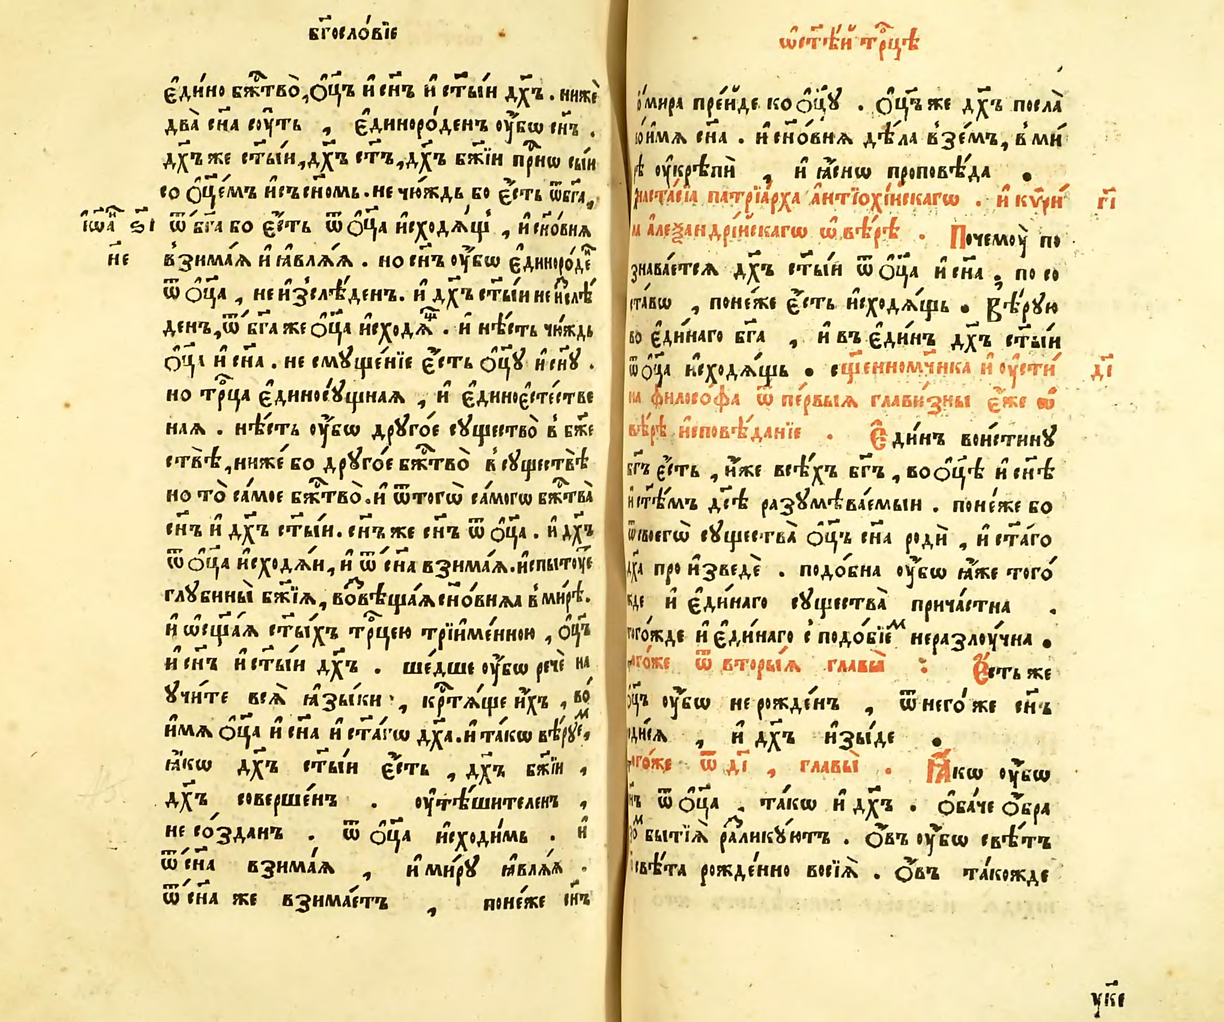 бг҃ословїе
є҆ди́но бж҃тво̀, ѻ҆ц҃ъ и҆ сн҃ъ и҆ ст҃ы́и дх҃ъ . нижѐ
два̀ сн҃а сꙋть , є҆диноро́денъ ᲂу҆́бѡ сн҃ъ .
дх҃ъ же ст҃ы́и, дх҃ъ ст҃ъ, дх҃ъ бж҃їи при́сѡ сы́и
со ѻ҆ц҃е́мъ и҆ съ сн҃омь . не чю́ждь бо є҆́сть ѿ бг҃а,
ѿ бг҃а бо є҆́сть ѿ ѻ҆ц҃а и҆сходѧ́щї , и҆ сн҃о́внѧ
і҆ѡа҃ ѕ҃і
не
взима́ѧ и҆ ꙗ҆влѧ́ѧ . но сн҃ъ ᲂу҆́бѡ є҆диноро́де
ѿ ѻ҆ц҃а , не и҆зслѣ́денъ . и҆ дх҃ъ ст҃ы́и не и҆слѣ́
денъ, ѿ бг҃а же ѻ҆ц҃а и҆сходѧ́ . и҆ нѣ́сть чю́ждь
ѻ҆ц҃а и҆ сн҃а . не смꙋще́нїе є҆́сть ѻ҆ц҃ꙋ и҆ сн҃ꙋ .
но трⷪ҇ца є҆диносꙋ́щнаѧ , и҆ є҆диноє҆сте́стве
наѧ . нѣ́сть ᲂу҆́бѡ дрꙋго́е сꙋщество̀ в бж҃е
ствѣ̀, ниже бо дрꙋго́е бж҃тво̀ в сꙋществѣ̀
но то̀ са́мое бж҃тво̀ . и҆ ѿ тогѡ̀ са́могѡ бж҃тва̀
сн҃ъ и҆ дх҃ъ ст҃ы́и . сн҃ъ же сн҃ъ ѿ ѻ҆ц҃а . и҆ дх҃ъ
ѿ ѻ҆ц҃а и҆сходѧ́и, и҆ ѿ сн҃а взима́ѧ . и҆спытꙋ́е
глꙋбины̀ бж҃їѧ, во́вѣща́ѧ сн҃о́внѧѧ в ми́рѣ .
и҆ ѡ҆сщ҃а́ѧ ст҃ы́хъ трⷪ҇цею трїи́менною , ѻ҆ц҃ъ
и҆ сн҃ъ и҆ ст҃ы́и дх҃ъ . ше́дше ᲂу҆́бѡ речѐ на
ᲂу҆чи́те всѧ̀ ꙗ҆зы́ки , крⷭ҇тѧ́ще и҆́хъ , во́
и҆́мѧ ѻ҆ц҃а и҆ сн҃а и҆ ст҃а́гѡ дх҃а . и҆ та́кѡ вѣ́рꙋе,
ꙗ҆́кѡ дх҃ъ ст҃ы́и є҆́сть , дх҃ъ бж҃їи ,
дх҃ъ соверше́нъ . ᲂу҆тѣ́шителенъ ,
не со́зданъ . ѿ ѻ҆ц҃а и҆сходи́мь . и҆
ѿ сн҃а взима́ѧ , и҆ ми́рꙋ ꙗ҆влѧ́ѧ .
ѿ сн҃а же взима́етъ , поне́же сн҃ъ
ѡ҆ ст҃ѣ́й трⷪ҇цѣ
мира пре́йде ко ѻ҆ц҃ꙋ . ѻ҆ц҃ъ же дх҃ъ посла̀
и҆́мѧ сн҃а . и҆ сн҃о́внѧ дѣ́ла взе́мъ, в ми́
рѣ ᲂу҆крѣпѝ , и҆ ꙗ҆́снѡ проповѣ́да .
настасі́а патрїа́рха а҆нтїохі́нскагѡ . и҆ кѵ́ри г҃і
ла а҆леѯандрі́йскагѡ ѡ҆ вѣ́рѣ . Почемꙋ̀ по
знава́етсѧ дх҃ъ ст҃ы́и ѿ ѻ҆ц҃а и҆ сн҃а ; по со
ста́вѡ , поне́же є҆́сть и҆сходѧ́щь . Вѣ́рꙋю
во є҆ди́наго бг҃а , и҆ въ є҆ди́нъ дх҃ъ ст҃ы́и
ѿ ѻ҆ц҃а и҆сходѧ́щь . сщ҃енномч҃ника и҆ ᲂу҆сти́ д҃і
на фило́софа ѿ пе́рвыѧ главизны̀ є҆́же ѡ҆
вѣ́рѣ и҆сповѣ́данїе . Є҆ди́нъ вои́стинꙋ
бг҃ъ є҆́сть , и҆́же всѣ́хъ бг҃ъ , во ѻ҆ц҃ѣ и҆ сн҃ѣ
и҆ ст҃ѣ́мъ дс҃ѣ разꙋмѣва́емыи . поне́же бо
ѿ своегѡ̀ сꙋщества̀ ѻ҆ц҃ъ сн҃а родѝ , и҆ ст҃а́го
дх҃а произведѐ . подо́бна ᲂу҆́бѡ ꙗ҆́же того́
жде и҆ є҆ди́наго сꙋщества̀ прича́стна .
того́жде и҆ є҆ди́наго с подо́бїеⷨ неразлꙋ́чна .
того́же ѿ вторы́ѧ главы̀ : Є҆́сть же
ѻ҆ц҃ъ ᲂу҆́бѡ не рожде́нъ , ѿ него́же сн҃ъ
роди́сѧ , и҆ дх҃ъ и҆зы́де .
того́же ѿ д҃і , главы̀ . Ꙗ҆́кѡ ᲂу҆́бѡ
сн҃ъ ѿ ѻ҆ц҃а . та́кѡ и҆ дх҃ъ . ѻ҆ба́че ѻ҆́бра
зоⷨ бытїѧ̀ ра́ликꙋютъ . ѻ҆́въ ᲂу҆́бѡ свѣ́тъ
свѣ́та рожде́нно возсїѧ̀ . ѻ҆́въ та́кожде
ᲂу҆ке